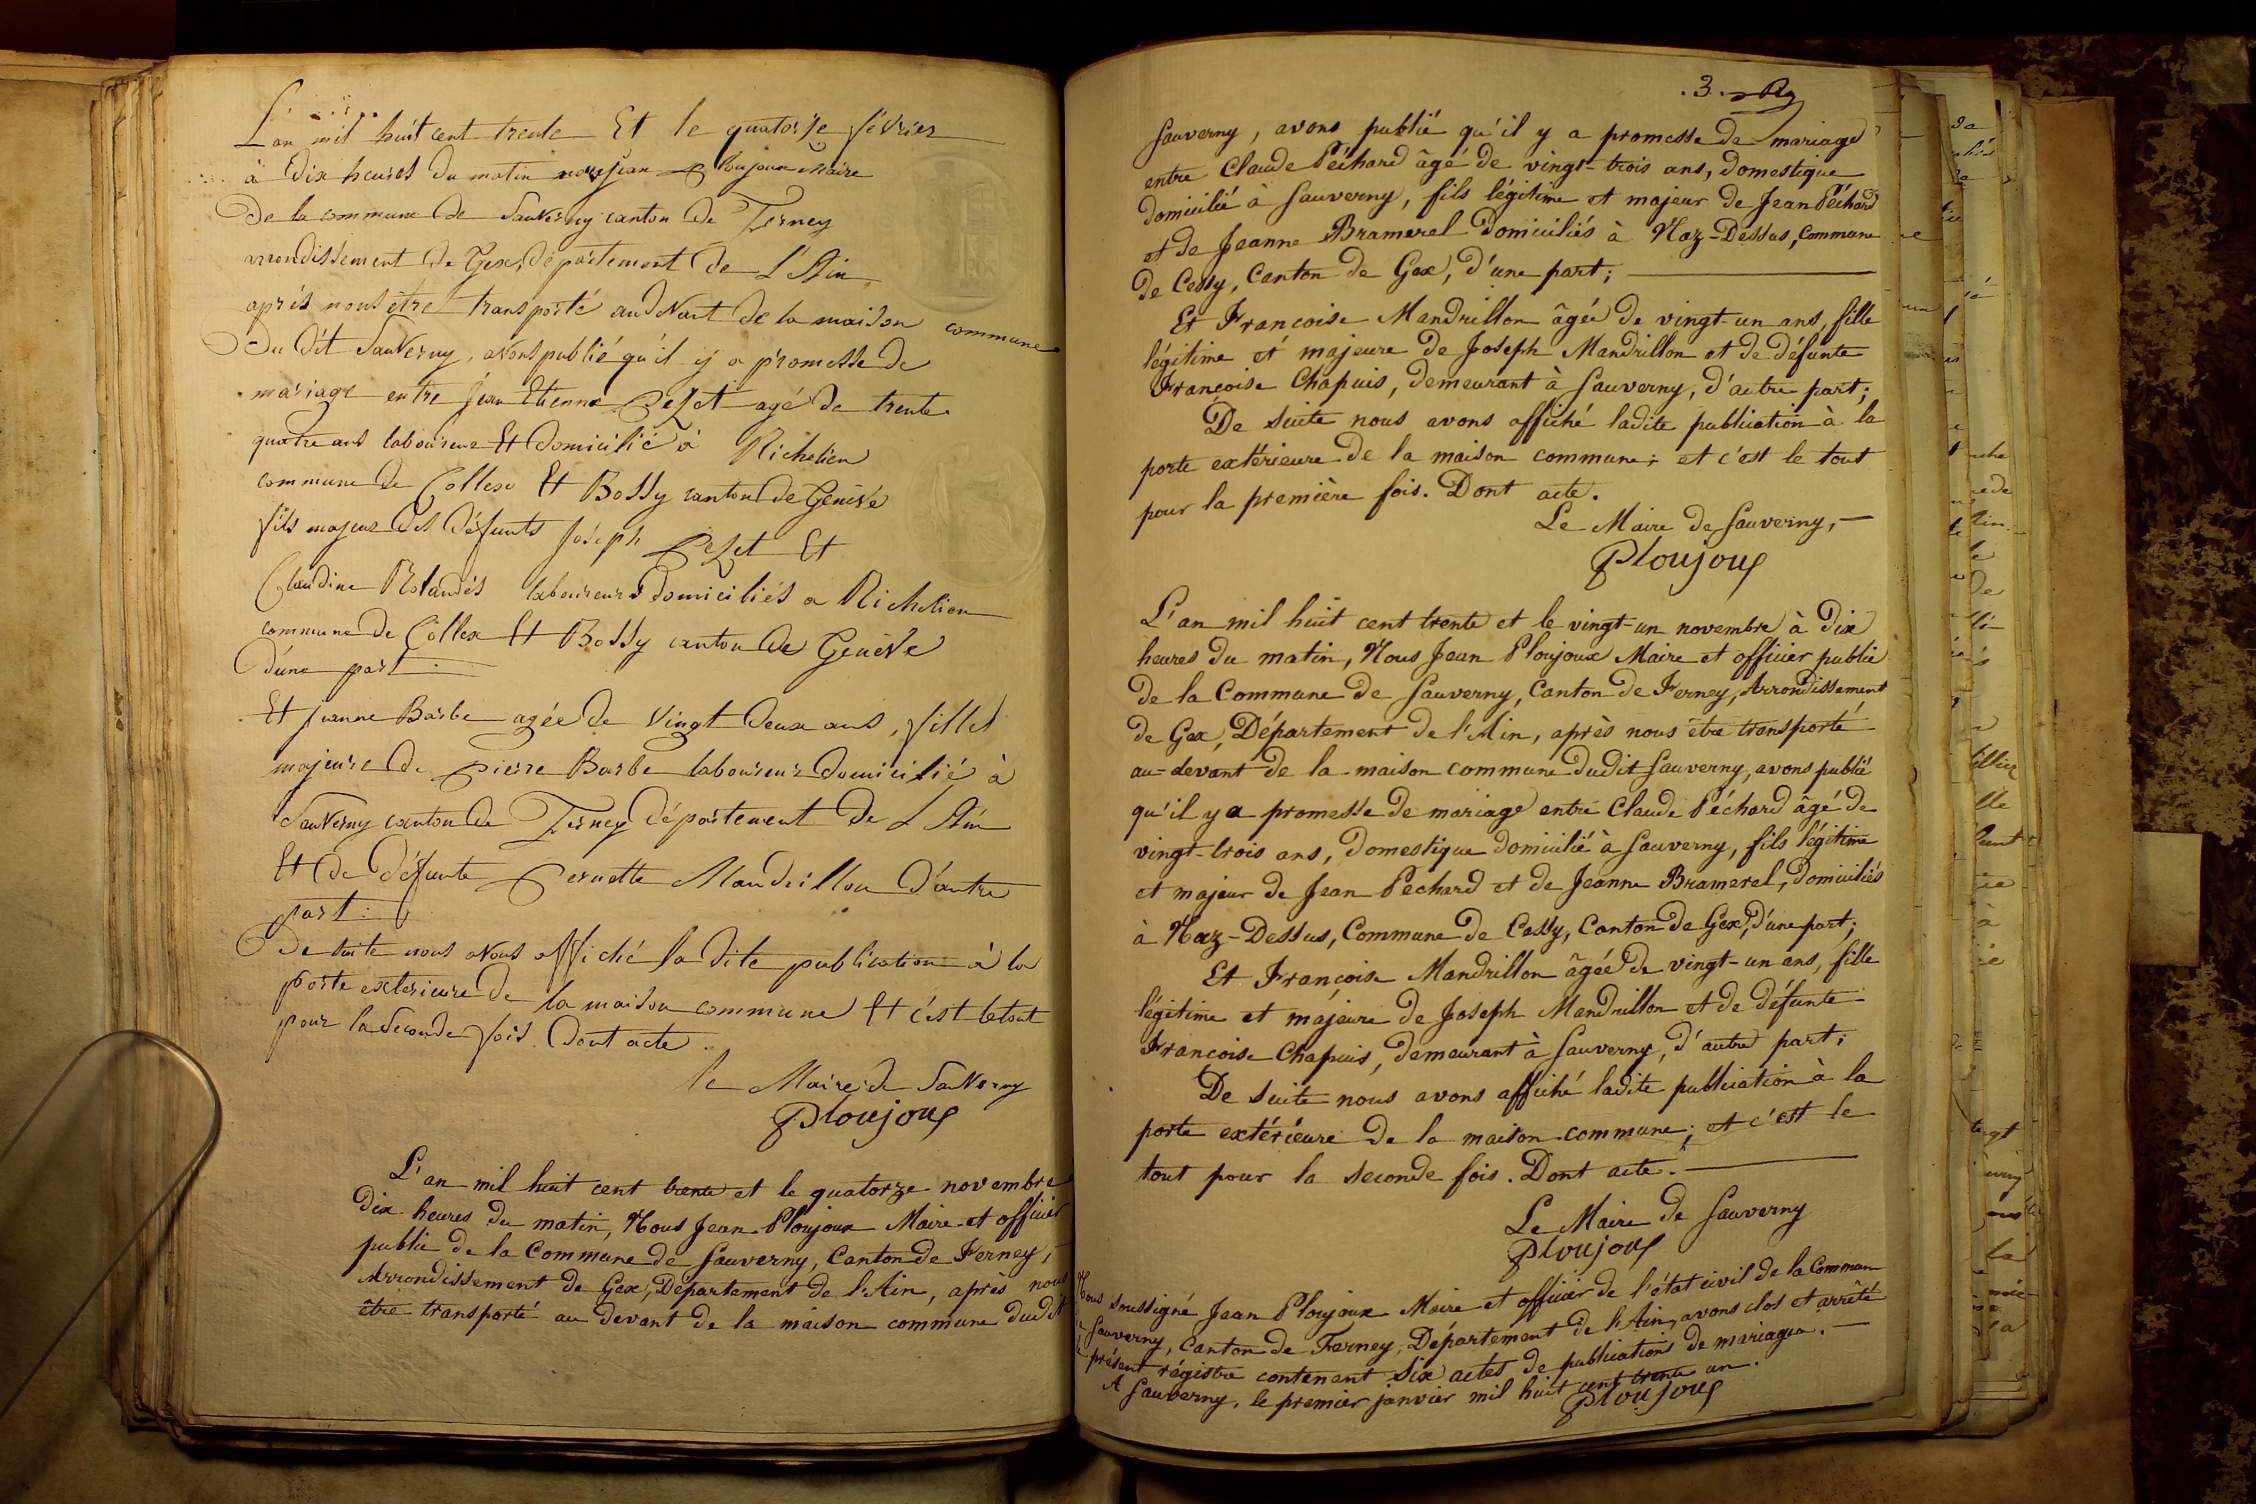 L'an mil huit cent trente Et le quatorze février
à dix heures du matin nous jean Ploujoux Maire
De la commune de Sauverny canton de Ferney
arrondissement de Gex, département de L'Ain,
après nous être transporté au devant de la maison commune
Du dit Sauverny, avons publié qu'il y a promesse de
mariage entre Jean Etienne Pezet agé de trente
quatre ans laboureur Et domicilié à Richelien
commune de Collex Et Bossy canton de Genève
fils majeur des défunts Joseph Pezet Et
Claudine laboureurs domiciliés a Richelien
commune de Collex Et Bossy canton de Genève
D'une part.
Et Jeanne Barbe agée de vingt deux ans, fille
majeure de Pierre Barbe laboureur domicilié à
Sauverny canton de Ferney département de L'Ain
Et de défunte Pernette Mandrillon D'autre
part :
De suite nous avons affiché la dite publication à la
porte exterieure de la maison commune Et c'est le tout
pour la seconde fois. Dont acte.
le Maire de Sauverny
Ploujoux
L'an mil huit cent trente et le quatorze novembre
dix heures du matin, Nous Jean Ploujoux Maire et officier
public de la Commune de Sauverny, Canton de Ferney,
Arrondissement de Gex, Département de l'Ain, après nous
être transporté au devant de la maison commune dudit
. 3 .
Sauverny, avons publié qu'il y a promesse de mariage
entre Claude Péchard âgé de vingt-trois ans, domestique
domicilié à Sauverny, fils légitime et majeur de Jean Péchard
et de Jeanne Bramerel domiciliés à Naz-Dessus, Commune
de Cessy, Canton de Gex, d'une part;
Et Françoise Mandrillon âgée de vingt-un ans, fille
légitime et majeure de Joseph Mandrillon et de défunte
Françoise Chapuis, demeurant à Sauverny, d'autre part;
De suite nous avons affiché ladite publication à la
porte extérieure de la maison commune; et c'est le tout
pour la première fois. Dont acte.
Le Maire de Sauverny,
Ploujoux
L'an mil huit cent trente et le vingt-un novembre à dix
heures du matin, Nous Jean Ploujoux Maire et officier public
de la Commune de Sauverny, Canton de Ferney, Arrondissement
de Gex, Département de l'Ain, après nous être transporté
au-devant de la maison commune dudit Sauverny, avons publié
qu'il y a promesse de mariage entre Claude Péchard âgé de
vingt-trois ans, domestique domicilié à Sauverny, fils légitime
et majeur de Jean Péchard et de Jeanne Bramerel, domiciliés
à Naz-Dessus, Commune de Cessy, Canton de Gex, d'une part;
Et Françoise Mandrillon âgée de vingt-un ans, fille
légitime et majeure de Joseph Mandrillon et de défunte
Françoise Chapuis, demeurant à Sauverny, d'autre part;
De suite nous avons affiché ladite publication à la
porte extérieure de la maison commune; et c'est le
tout pour la seconde fois. Dont acte.
Le Maire de Sauverny
Ploujoux
Nous soussigné Jean Ploujoux Maire et officier de l'état civil de la Commune
de Sauverny, Canton de Ferney, Département de l'Ain, avons clos et arrêté
le présent régistre contenant six actes de publications de mariages.
A Sauverny, le premier janvier mil huit cent trente un.
Ploujoux